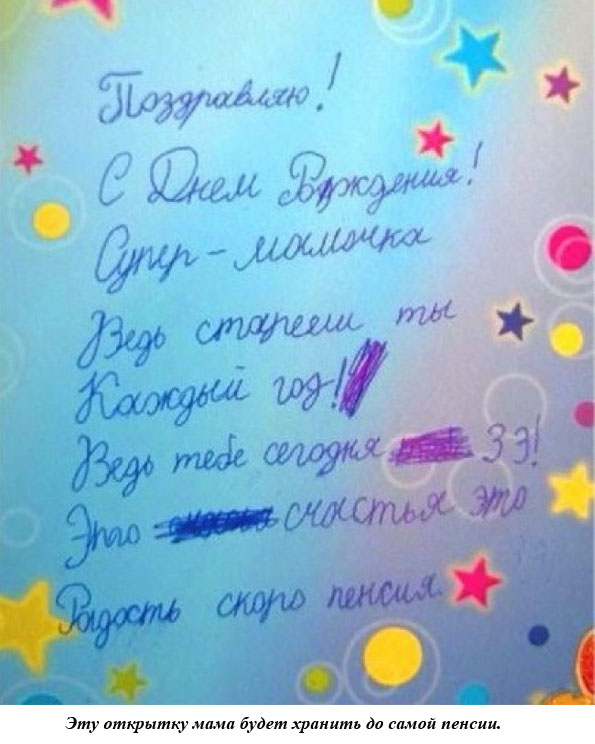 Поздравляю!
С Днем Рождения!
Супер-мамочка
Ведь стареешь ты
Каждый год!
Ведь тебе сегодня 33!
Это счастья это
Радость скоро пенсия.
Эту открытку мама будет хранить до самой пенсии.